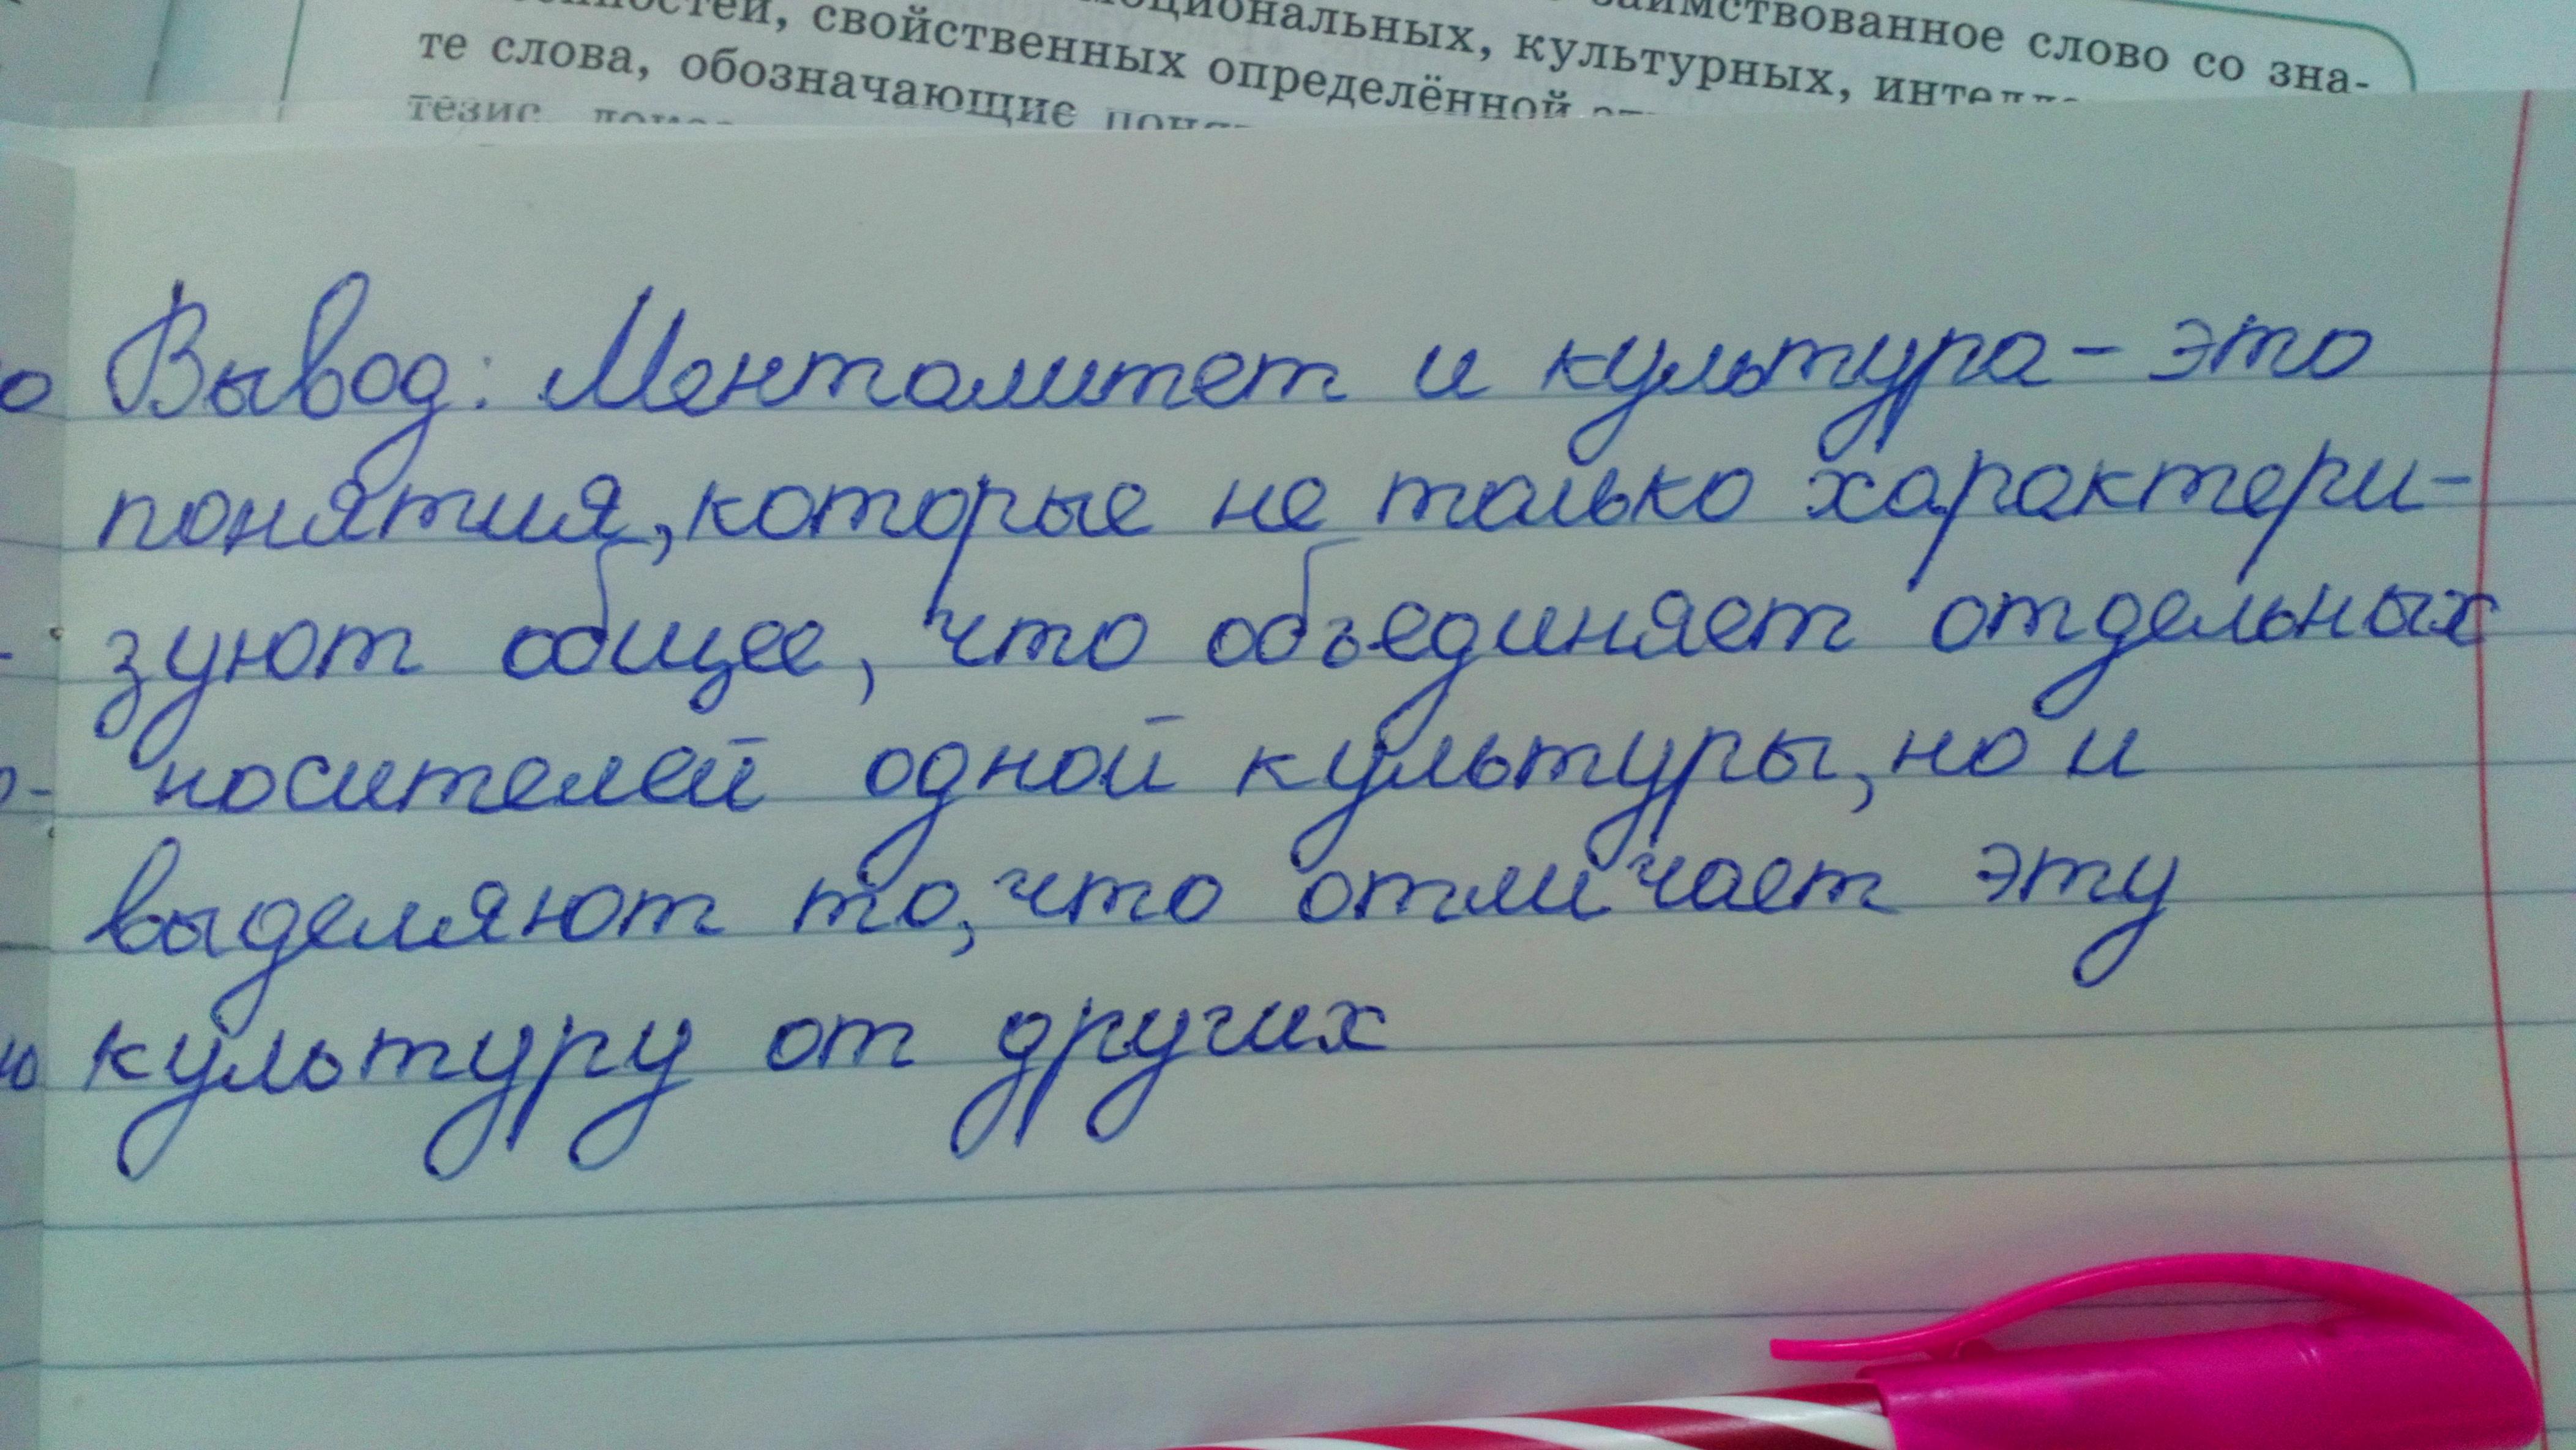 заимствованное слово со зна-
культурных,
свойственных определённой
те слова, обозначающие
тезис,
Вывод: Менталитет и культура - это
понятия, которые не только характери-
зуют общее, что объединяет отдельных
носителей одной культуры, но и
выделяют то, что отличает эту
культуру от других